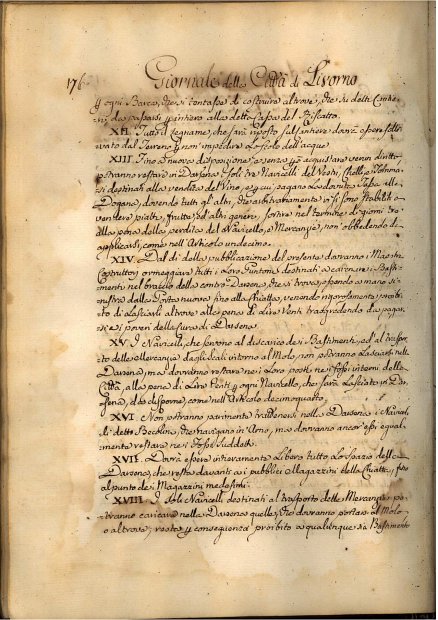 176 Giornale della Città di Livorno
p ogni Barca, che si contasse di costruire altrove, che sù detti Cantie-
ri, da pagarsi p intiero alla detta Cassa del Riscatto.
XII. Tutto il legname, che sarà riposto sul Cantiere dovrà essere solle-
vato dal Terreno p non impedire lo scolo dell'acque.
XIII. Fino à nuova disposizione, e senza p ciò acquistare verun diritto,
potranno restare in Darsena i soli tre Navicelli dei
si destinati alla vendita del Vino, e p cui pagano la dovuta alla
Dogana, dovendo tutti gli altri, che arbitrariamente vi si sono stabiliti a
vendere piatti, frutta ed altri generi, sortire nel termine di giorni tre
alla pena della perdita del Navicello, e Mercanzie, non obbedendo, da
applicarsi, come nell'Articolo undecimo.
XIV. Dal dì della pubblicazione del presente dovranno i Maestri
Costruttori ormeggiare tutti i loro Puntoni destinati a carenare i Basti-
menti nel braccio della contro Darsena, che si trova, essendo a mano si-
nistra dalla Porta nuova fino alla Chiatta, venendo rigorosamente proibi-
to di lasciarli altrove alla pena di Lire Venti trasgredendo da pagar-
si ai poveri della Cura di Darsena.
XV. I Navicelli, che servono al discarico dei Bastimenti, ed al traspor-
to delle Mercanzie dagli Scali intorno al Molo, non potranno lasciarsi nella
Darsena, ma dovranno restare nei loro posti nei fossi interni della
Città, alla pena di Lire Venti p ogni Navicello, che sarà lasciato in Dar-
sena, da disporne, come nell'Articolo decimoquarto.
XVI. Non potranno parimente trattenersi nella Darsena i Navicel-
li detti Becolini, che navigano in Arno, ma dovranno ancor essi egual-
mente restare nei Fossi suddetti.
XVII. Dovrà essere interamente libero tutto lo spazio della
Darsena, che resta davanti ai pubblici Magazzini della Chiatta, fino
al punto dei Magazzini medesimi.
XVIII. I soli Navicelli destinati al trasporto delle Mercanzie po-
tranno caricare nella Darsena quelle, che dovranno portare al Molo,
o altrove; resta p conseguenza proibito a qualunque sia Bastimento